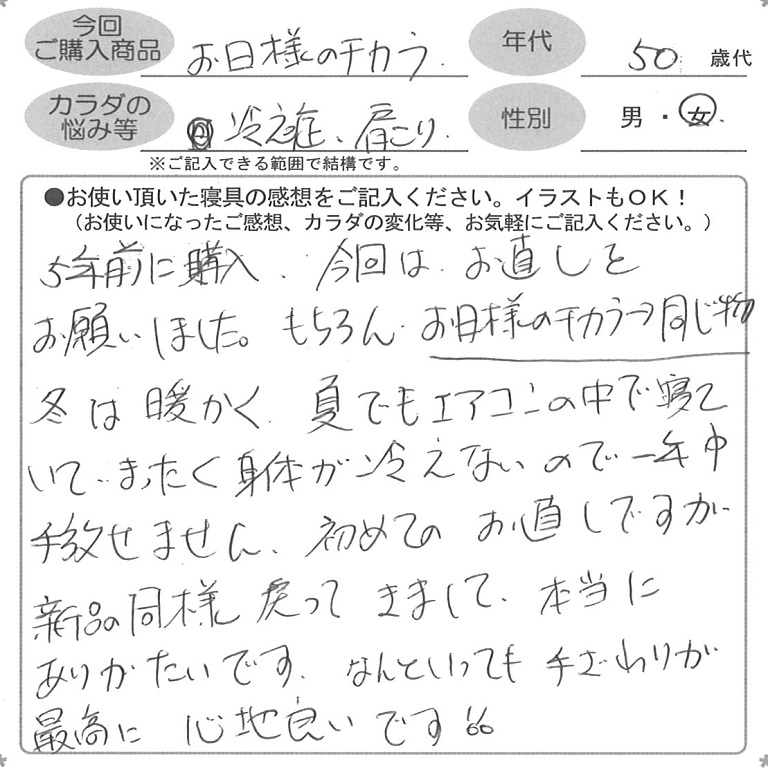 今回
ご購入商品
お日様のチカラ.
年代
50 歳代
カラダの
悩み等
冷え症、肩こり.
性別
男・女.
※ご記入できる範囲で結構です。
●お使い頂いた寝具の感想をご記入ください。イラストもOK！
（お使いになったご感想、カラダの変化等、お気軽にご記入ください。）
5年前に購入. 今回は. お直しを
お願いしました。もちろん. お日様のチカラ→同じ物
冬は暖かく. 夏でもエアコンの中で寝て
いて. まったく身体が冷えないので一年中
手放せません. 初めてのお直しですが.
新品の同様 戻ってきまして. 本当に
ありがたいです. なんといっても手ざわりが
最高に 心地良いです